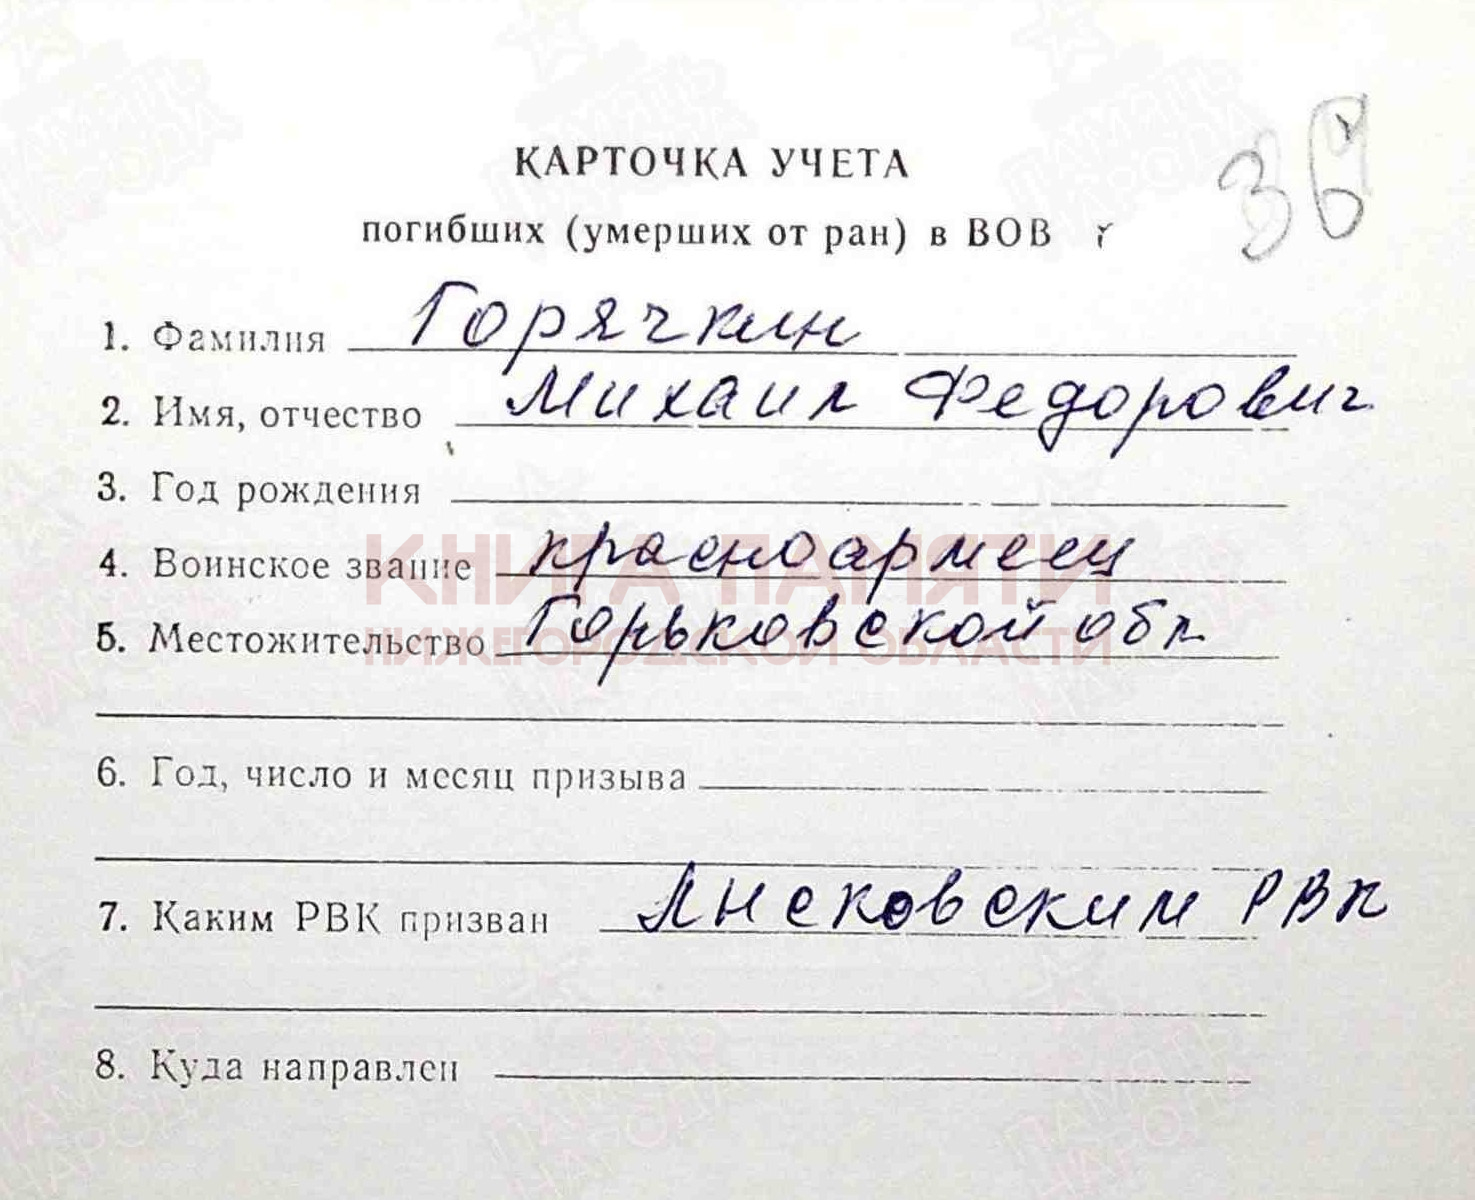 КАРТОЧКА УЧЕТА
погибших (умерших от ран) в ВОВ
1. Фамилия Горячкин
2. Имя, отчество Михаил Федорович
3. Год рождения
4. Воинское звание красноармеец
КНИГА ПАМЯТИ
5. Местожительство Горьковской обл
НИЖЕГОРОДСКОЙ ОБЛАСТИ
6. Год, число и месяц призыва
7. Каким РВК призван Лысковским РВК
8. Куда направлен